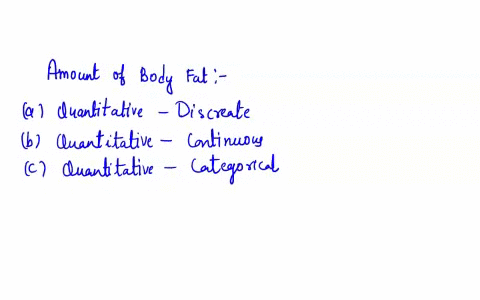 Amount of Body Fat :-
(a) Quantitative - Discreate
(b) Quantitative - Continuous
(c) Quantitative - Categorical